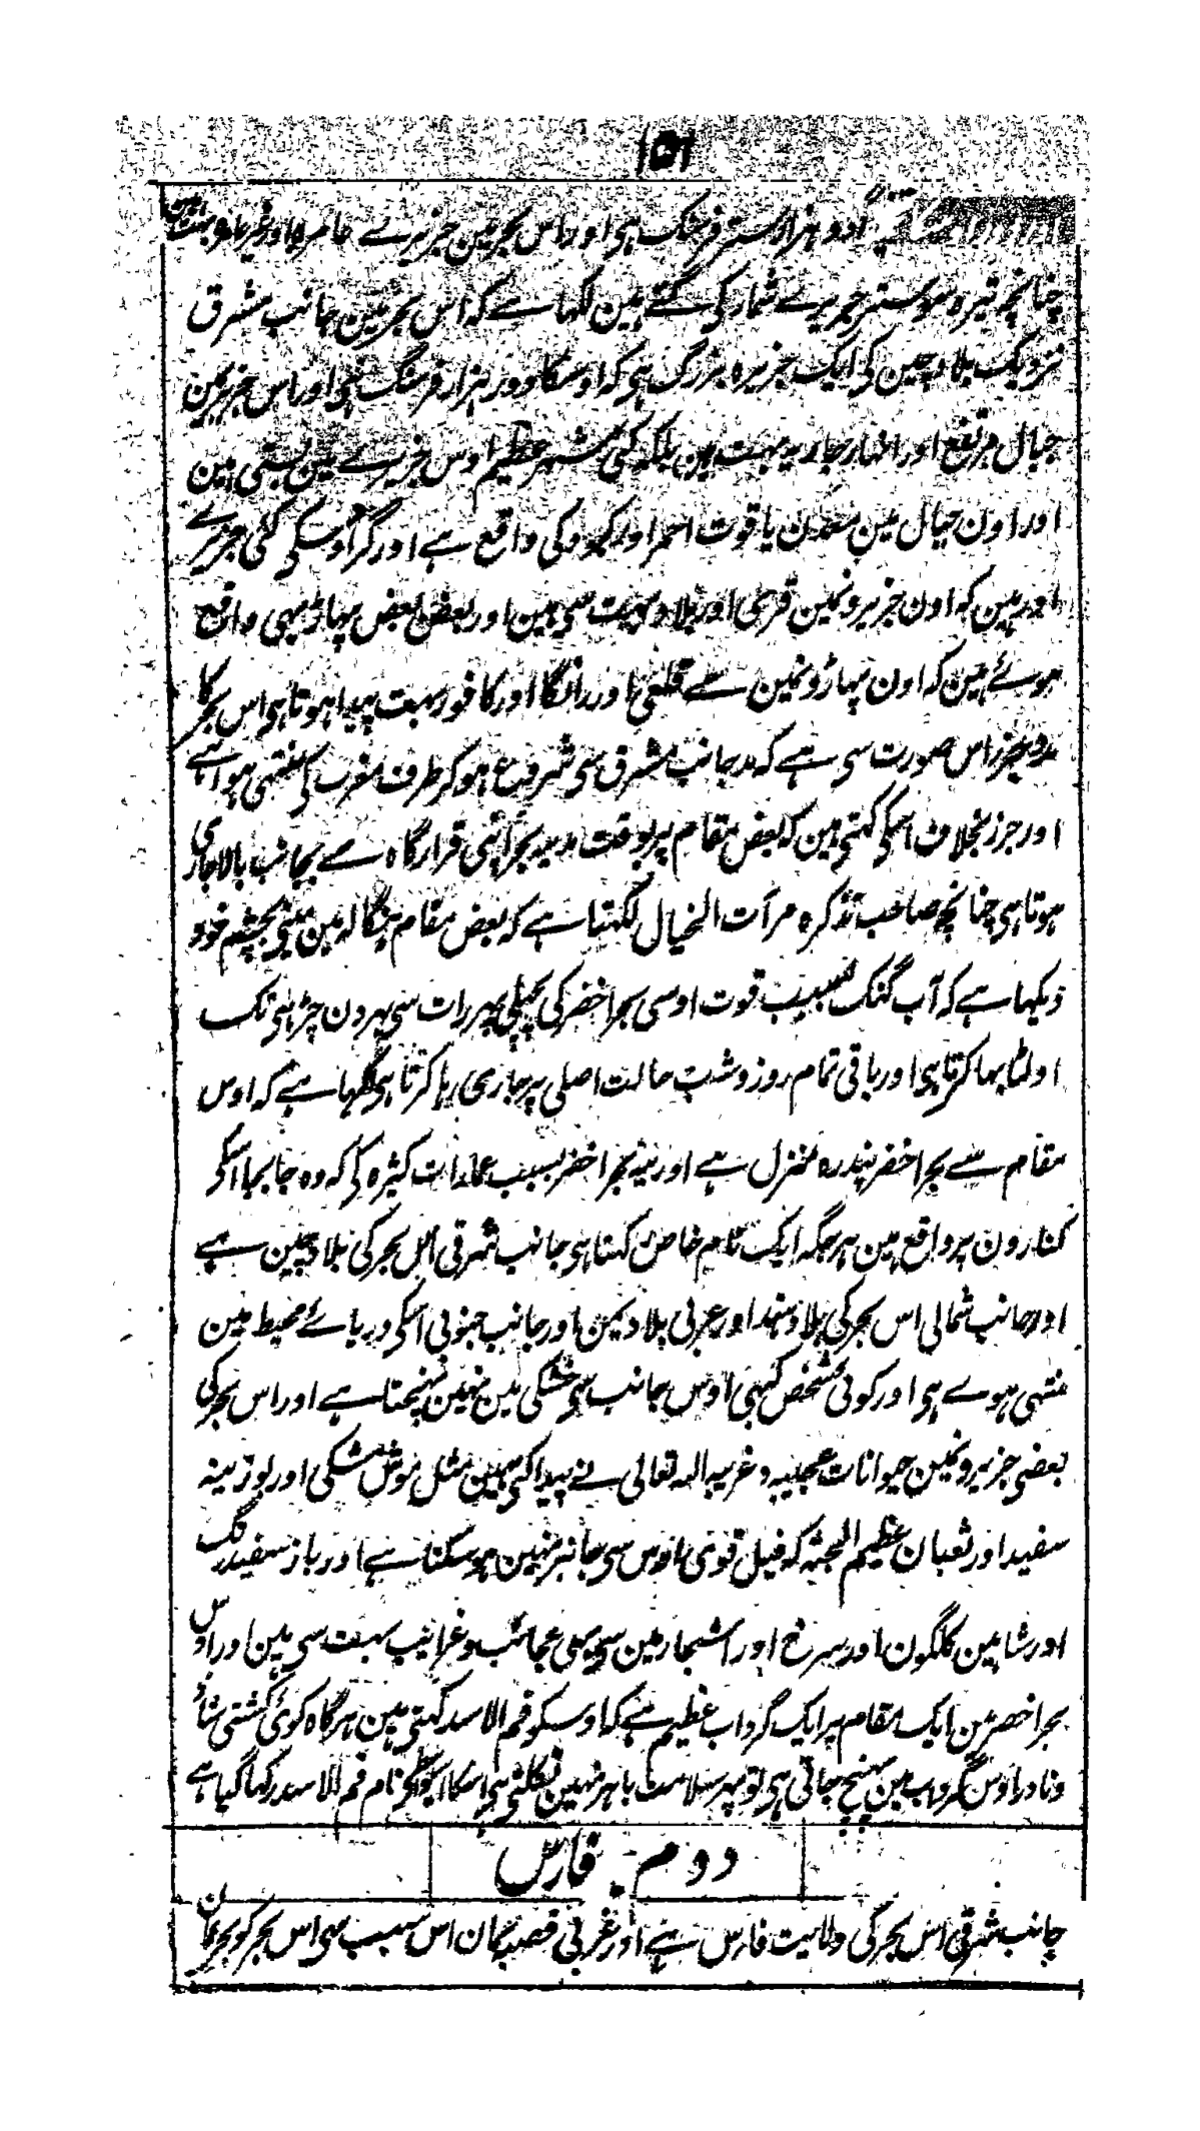 ۱۵۱
دو ہزار ستر فرسنگ ہی اور اس بحر مین جزیرے عامرہ اور غیر عامرہ بہت ہین
چنانچہ تیرہ سو ستر جزیرے شمار کی گئے ہین لکہا ہے کہ اس بحر مین جانب مشرق
نزدیک بلاد چین کی ایک جزیرہ بزرگ ہی کہ اوسکا دور ہزار فرسنگ ہی اور اس جزیرہ مین
جبال مرتفع اور انہار جاریہ بہت ہین بلکہ کئی شہر عظیم اوس جزیرے مین بستی ہین
اور اون جبال مین معدن یاقوت احمر اور کبود کی واقع ہے اور گرد اوسکی کئی جزیرے
اور ہین کہ اون جزیرونمین قری اور بلاد بہت سی ہین اور بعض بعض پہاڑ بہی واقع
ہوئے ہین کہ اون پہاڑونمین سے قلعی اور رانگا اور کافور بہت پیدا ہوتا ہی اس بحر کا
مد و جزر اس صورت سی ہے کہ مد جانب مشرق سی شروع ہو کر طرف مغرب کی منتہی ہوا ہے
اور جزر بخلاف اسکی کہتی ہین کہ بعض مقام پر بوقت مد یہ بحر اپنی قرارگاہ سے بجانب بالا جاری
ہوتا ہی چنانچہ صاحب تذکرہ مرآت الخیال لکہتا ہے کہ بعض مقام بنگالہ مین مینی بچشم خود
دیکہا ہے کہ آب گنگ بسبب قوت اوسی بحر اخضر کی پچہلی پہر رات سی پہر دن چڑہی تک
اولٹا بہا کرتا ہی اور باقی تمام روز و شب حالت اصلی پر جاری رہا کرتا ہی لکہا ہے کہ اوس
مقام سے بحر اخضر پندرہ منزل ہے اور یہ بحر اخضر بسبب عمارات کثیرہ کی کہ وہ جابجا اسکی
کنارون پر واقع ہین ہر جگہ ایک نام خاص رکہتا ہی جانب شرقی اس بحر کی بلاد چین ہے
اور جانب شمالی اس بحر کی بلاد ہند اور غربی بلاد یمن اور جانب جنوبی اسکی دریائے محیط مین
منتہی ہوے ہی اور کوئی شخص کبہی اوس جانب سی خشکی مین نہین پہنچتا ہے اور اس بحر کی
بعضی جزیرونمین حیوانات عجیبہ و غریبہ اللہ تعالی نے پیدا کئی ہین مثل موش مشکی اور بوزینہ
سفید اور ثعبان عظیم الجثہ کہ فیل قوی اوس سی جانبر نہین ہو سکتا ہے اور باز سفید رنگ
اور شاہین گلگون اور سرخ اور اشجار مین سی بہی عجائب و غرائب بہت سی ہین اور اوس
بحر اخضر مین ایک مقام پر ایک گرداب عظیم ہے کہ اوسکو فم الاسد کہتی ہین ہرگاہ کوئی کشتی شاذ
و نادر اوس گرداب مین پہنچ جاتی ہی تو پہر سلامت باہر نہین نکلتی ہی اسکا نام فم الاسد رکہا گیا ہے
دوم فارس
جانب شرقی اس بحر کی ولایت فارس ہے اور غربی قصبہ عمان اس سبب سی اس بحر کو بحر عمان